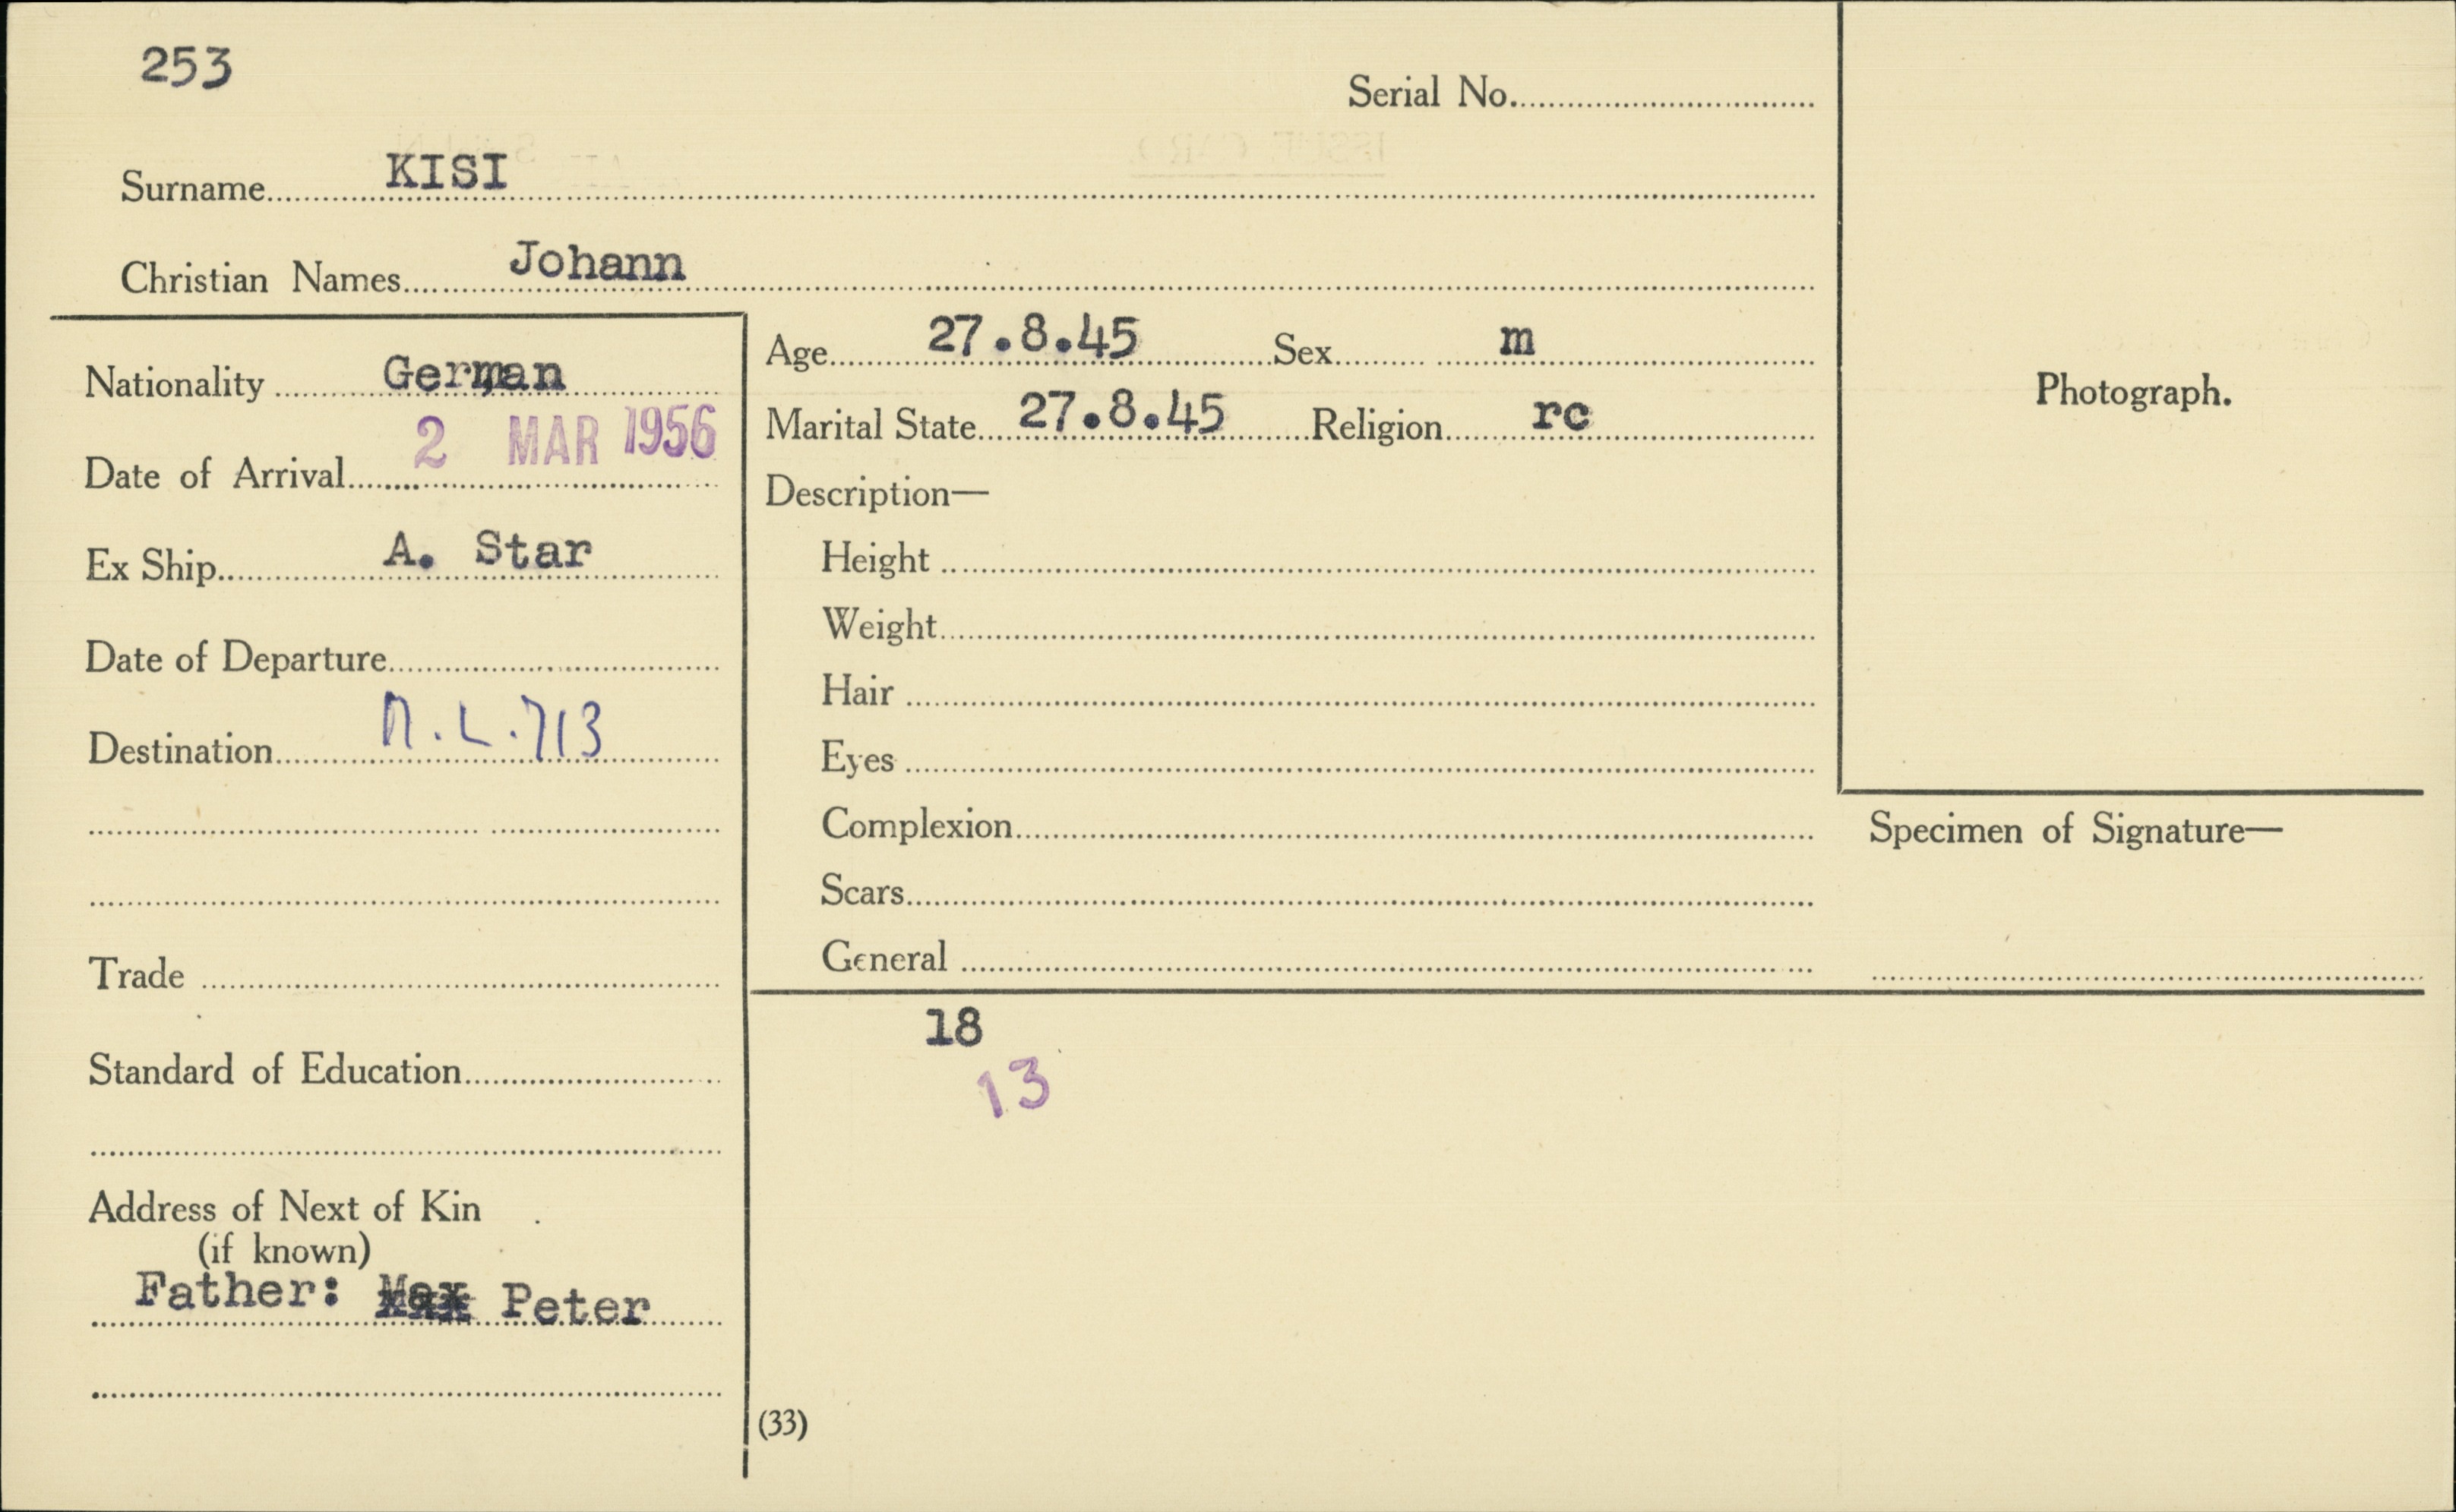 253
Serial No.
Surname KISI
Christian Names Johann
Nationality German
Date of Arrival 2 MAR 1956
Ex Ship A. Star
Date of Departure
Destination M.L.713
Trade
Standard of Education
Address of Next of Kin
(if known)
Father: Max Peter
Age 27.8.45 Sex m
Marital State 27.8.45 Religion rc
Description—
Height
Weight
Hair
Eyes
Complexion
Scars
General
18
13
(33)
Photograph.
Specimen of Signature—